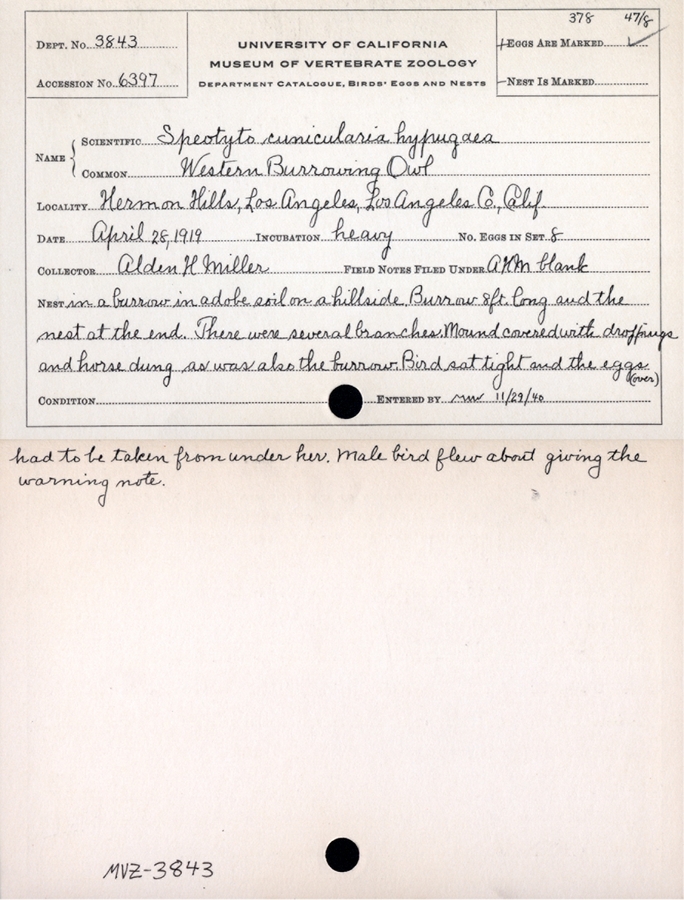 378 47/8
Dept. No. 3843
UNIVERSITY OF CALIFORNIA
Eggs Are Marked ✓
MUSEUM OF VERTEBRATE ZOOLOGY
Accession No. 6397
Department Catalogue, Birds' Eggs and Nests
Nest Is Marked
Name { Scientific Speotyto cunicularia hypugaea
Common Western Burrowing Owl
Locality Hermon Hills, Los Angeles, Los Angeles Co., Calif.
Date April 28, 1919 Incubation heavy No. Eggs in Set 8
Collector Alden H Miller Field Notes Filed Under AHM blank
Nest in a burrow in adobe soil on a hillside. Burrow 8ft. long and the
nest at the end. There were several branches. Mound covered with droppings
and horse dung as was also the burrow. Bird sat tight and the eggs
(over)
Condition Entered by MW 11/29/40
had to be taken from under her. Male bird flew about giving the
warning note.
MVZ-3843